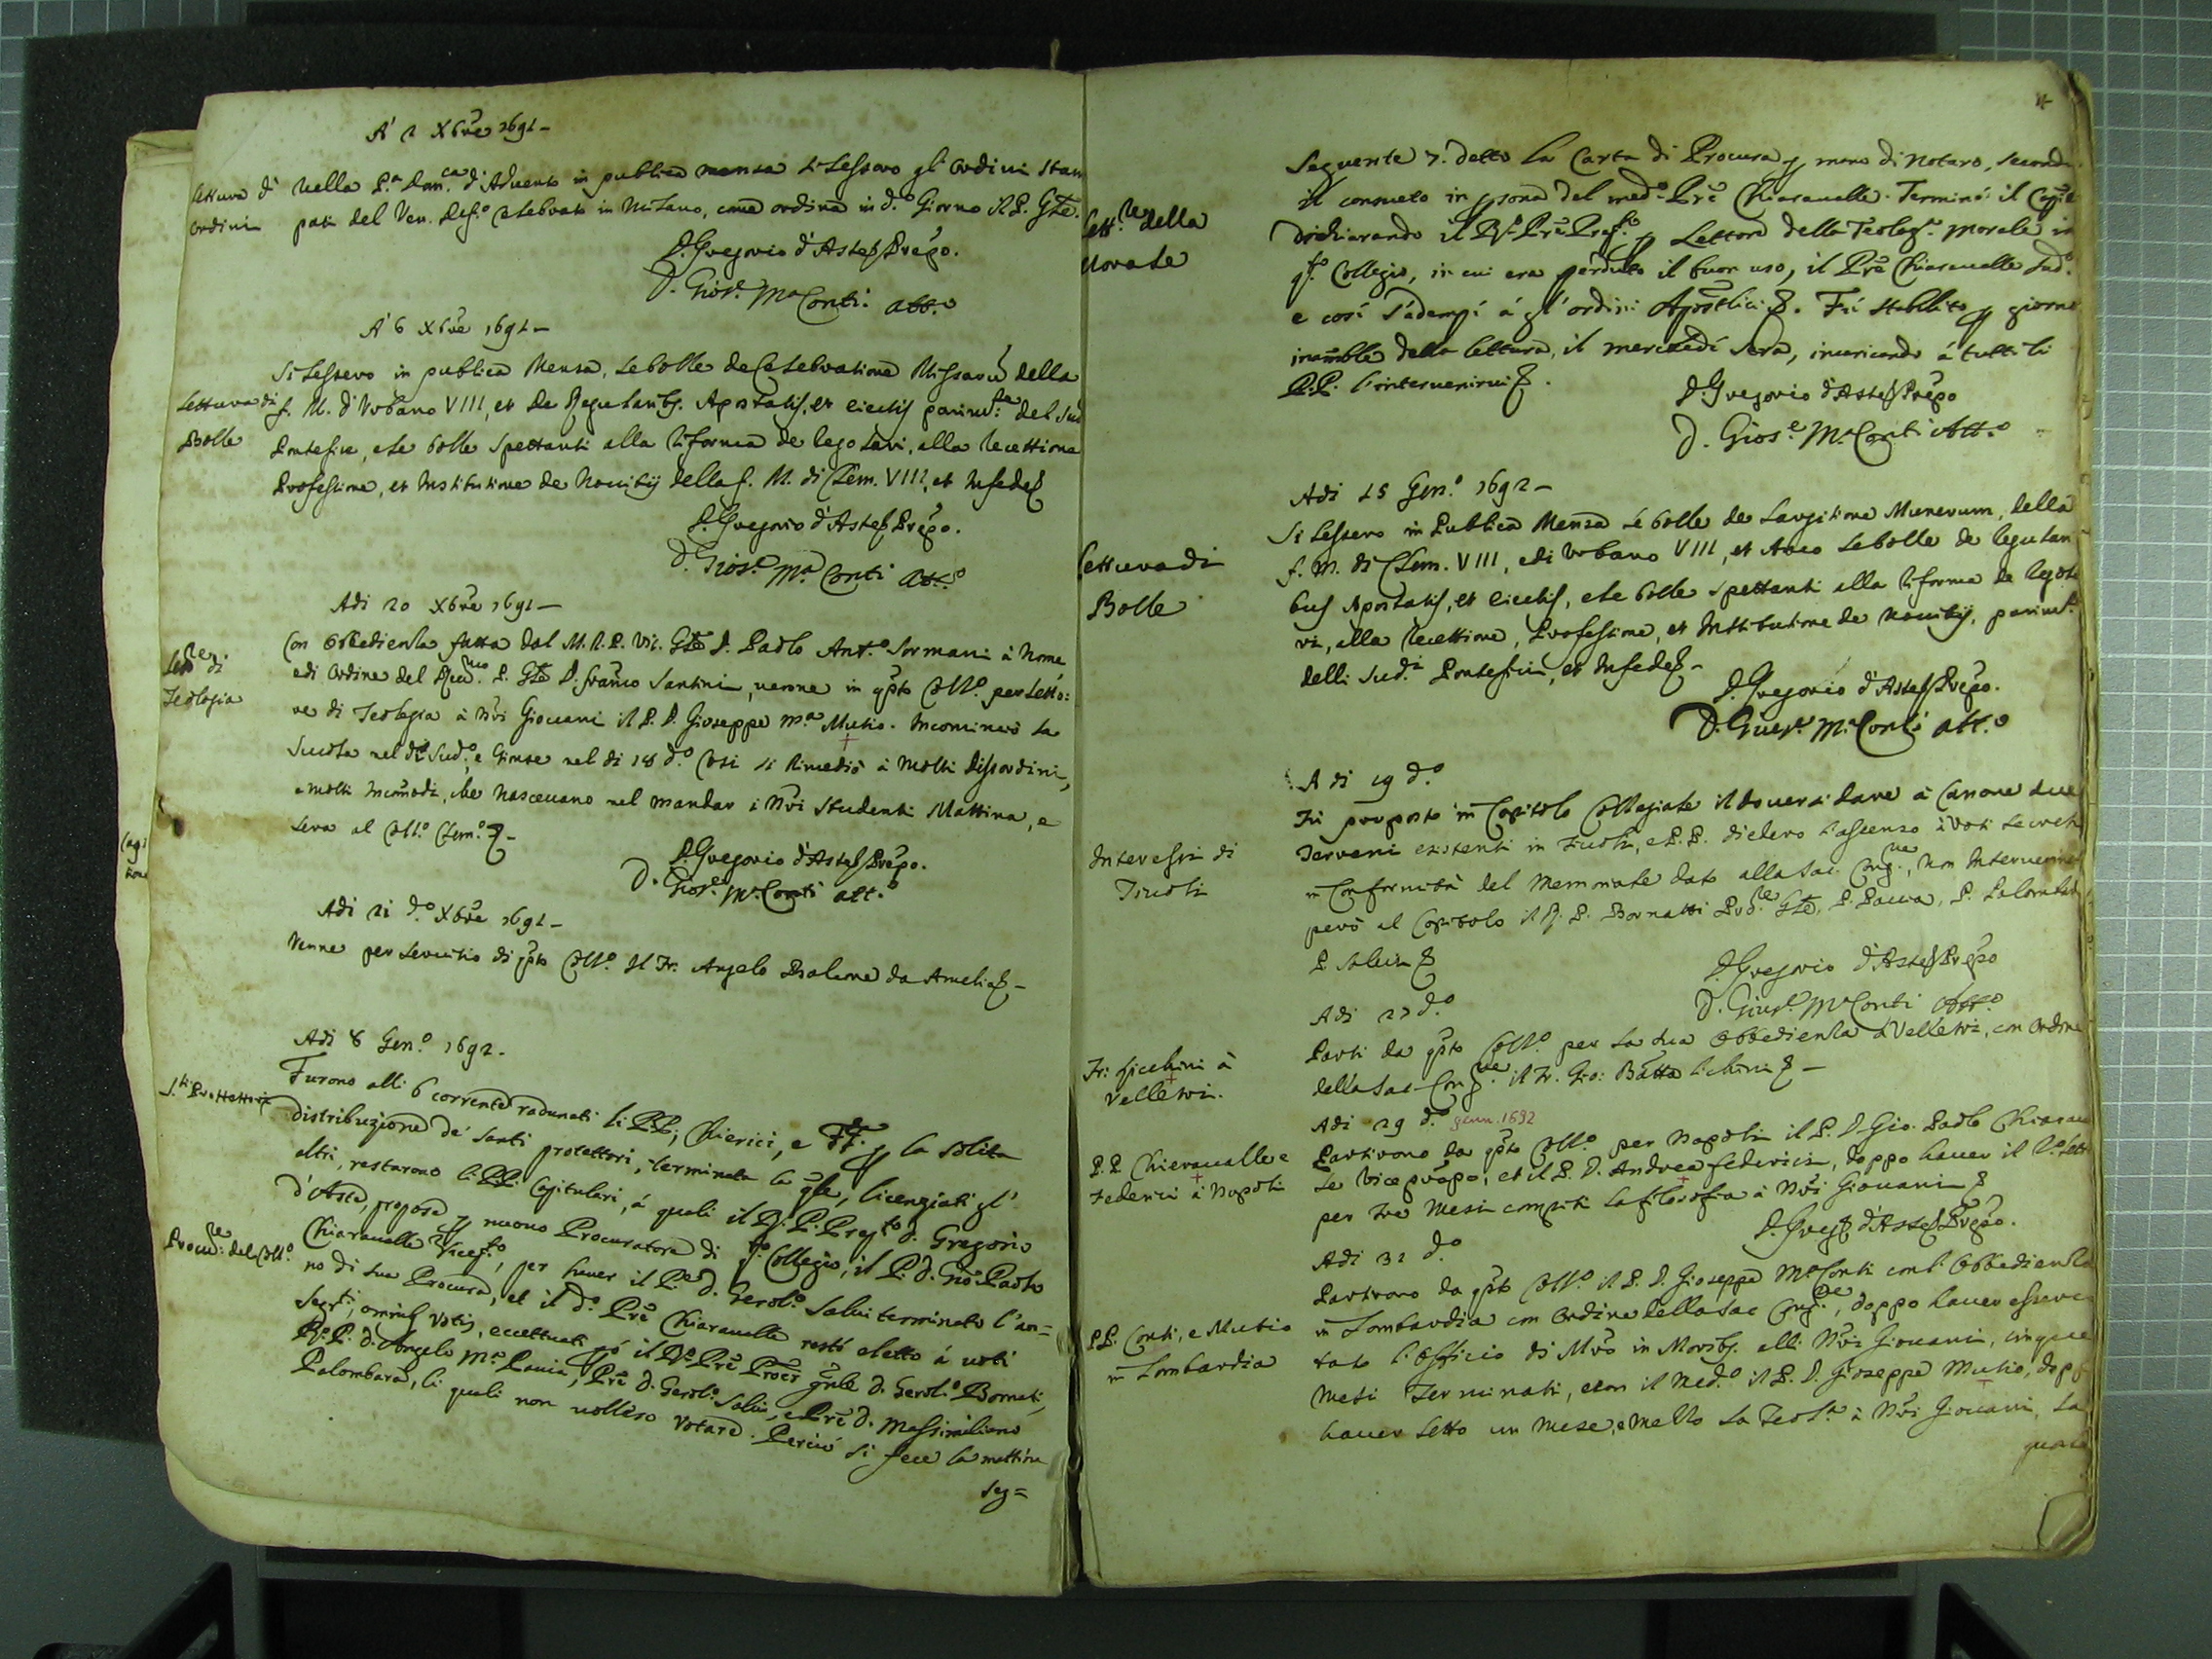 A' 2 Xbre 1691 –
Lettura d'
Ordini
Nella P.a Dom.ca d'Advento in publica mensa si lessero gl'Ordini stam
pati del Ven. Def.o celebrato in Milano, come ordina in d.o Giorno il P. Gnle.
D. Gregorio d'Aste Prepo.
D. Gios.e M.a Conti att.o
A' 6 Xbre 1691 –
Lettura di
Bolle
Si lessero in publica Mensa, le bolle de Celebratione Missarum della
f. M. d'Urbano VIII, et de Regularibus Apostatis, et eiectis parim.te del sud
Pontefice, e le bolle spettanti alla riforma de regolari, alla recettione
Professione, et Institutione de Novitij della f. M. di Clem. VIII, et in fede
D. Gregorio d'Aste Prepo.
D. Gios.e M.a Conti att.o
Adi 20 Xbre 1691 –
Lett.re di
Teologia
Con obbedienza fatta dal M. R. P. Vic. Gnle D. Paolo Ant.o Sormani à nome
e di ordine del R.mo P. Gnle D. Franco Santini, venne in qsto Coll.o per Letto:
re di Teologia à nri Giovani il P. D. Gioseppe M.a Mutio. Incominciò la
scuola nel dì sud.o, e giunse nel di 18 d.o Così si rimediò à molti dissordini,
e molti incomodi, che nascevano nel mandar i nri studenti Mattina, e
sera al Coll.o Clem.o –
D. Gregorio d'Aste Prepo.
D. Gios.e M.a Conti att.o
Adi 21 d.o Xbre 1691 –
Venne per servitio di qsto Coll.o il Fr. Angelo da Amelia –
Adi 8 Gen.o 1692.
S.ti Protettori
Furono alli 6 corrente radunati li PP., Chierici, e FF. p la solita
distribuzione de' Santi protettori, terminata la qle, licenziati gl'
altri, restarono li PP. Capitulari, á quali il P. Prep.to D. Gregorio
d'Aste, propose p nuovo Procuratore di q.to Collegio, il P. D. Gio: Paolo
Chiaravalle Vicep.to, per haver il P. D. Gerol.o Salvi terminato l'an=
Procu.re del Coll.o
no di sua Procura, et il d.o Pre Chiaravalle restò eletto á voti
segr.ti, omnibus votis, eccettuati pò il Pre Procr gnle D. Gerol.o Bornati,
P. D. Angelo M.a Pavia, Pre D. Gerol.o Salvi, e Pre D. Massimiliano
Palombara, li quali non volsero votare. Perciò si fece la mattina
seg=
Seguente 7. detto la Carta di Procura p mano di notaro, secondo
il consueto in psona del med.o Pre Chiaravalle. Terminò il Caple
Lett.re della
Morale
dichiarando il Pre Prep.to p Lettore della Teolog.a morale in
q.to Collegio, in cui era perduto il buon uso, il Pre Chiaravalle sud.o
e così s'adempì á gl'ordini Apostlici. Fù stabilito p giorno
della lettura, il mercoledì sera, incaricando á tutti li
P.P. l'intervenirvi.
D. Gregorio d'Aste Prepo
D. Gios.e M.a Conti Att.o
Adi 15 Gen.o 1692 –
Lettura di
Bolle
Si lessero in Publica Mensa le bolle de Largitione Munerum, della
f. M. di Clem. VIII, e di Urbano VIII, et anco le bolle de regulari
bus Apostatis, et eiectis, e le bolle spettanti alla riforma de regola
ri, alla recettione, Professione, et Institutione de Novitij, parim.te
delli sud.i Pontefici, et in fede –
D. Gregorio d'Aste Prepo.
D. Gius.e M.a Conti att.o
A di 19 d.o
Interessi di
Tivoli
Fù proposto in Capitolo Collegiale il doversi dare à Canone due
Terreni esistenti in Tivoli, e P.P. diedero l'assenso à voti secreti
in conformità del memoriale dato alla Sac. Cong.ne, non intervennero
però al Capitolo il P. Bornatti Pro.re Gnle, P. Pavia, P. Palombara
P. Salvi
D. Gregorio d'Aste Prepo
D. Gius.e M.a Conti Att.o
Adi 27 d.o
Fr: Licchini à
Velletri.
Partì da qsto Coll.o per la sua obbedienza à Velletri, con ordine
della Sac. Cong.ne il Fr. Gio: Batta Lichini –
Adi 29 d.o genn. 1692
P.P. Chiaravalle e
Federici à Napoli
Partirono da qsto Coll.o per Napoli il P. D. Gio. Paolo Chiarav
le Vicepropo, et il P. D. Andrea Federici, doppo haver il P.o letto
per tre mesi compiti la filosofia à nri Giovani
D. Greg. d'Aste Prepo.
Adi 31 d.o
PP. Conti, e Mutio
in Lombardia
Partirono da qsto Coll.o il P. D. Gioseppe M.a Conti con l'obbedienza
in Lombardia con ordine della Sac Cong.ne, doppo haver esserci
tato l'officio di Mro in Moribus alli nri Giovani, cinque
mesi terminati, e con il med.o il P. D. Gioseppe Mutio, dopo
haver letto un mese, e mezzo la Teol.a à nri Giovani, la
quale